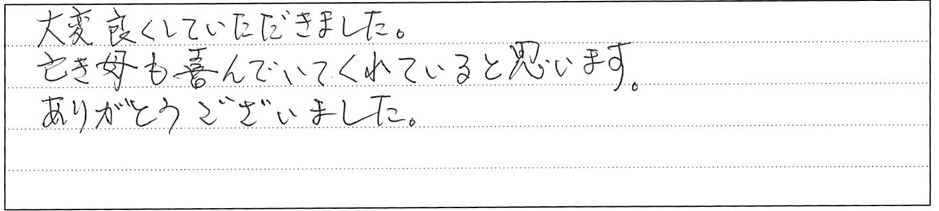 大変良くしていただきました。
亡き母も喜んでいてくれていると思います。
ありがとうございました。